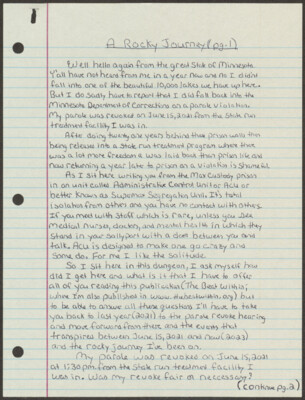 A Rocky Journey (pg. 1)
Well hello again from the great State of Minnesota.
Y'all have not heard from me in a year now and no I didn't
fall into one of the beautiful 10,000 lakes we have up here.
But I do sadly have to report that I did fall back into the
Minnesota Department of Corrections on a parole violation.
My parole was revoked on June 15, 2021 from the State run
treatment facility I was in.
After doing twenty six years behind these prison walls then
being released into a State run treatment program where there
was a lot more freedom & was laid back than prison life and
now returning a year later to prison on a violation is
As I sit here writing you from the Max Custody prison
in an unit called Administrative Control Unit or ACU or
better known as Supermax Segregation Unit. It's total
isolation from others and you have no contact with others.
If you meet with staff which is rare, unless you see
Medical nurses, doctors, and mental health in which they
stand in your sallyport with a door between you and
talk. ACU is designed to make one go crazy and
some do. For me I like the solitude.
So I sit here in this dungeon, I ask myself how
did I get here and what is it that I have to offer
all of you reading this publication (The Best Within;
where I'm also published in www.thebestwithin.org) but
to be able to answer all these questions I'll have to take
you back to last year (2021) to the parole revoke hearing
and move forward from there and the events that
transpired between June 15, 2021 and now (2022)
and the rocky journey I've been on.
My parole was revoked on June 15, 2021
at 1:30 pm from the State run treatment facility I
was in. Was my revoke fair or neccessary?
(continue pg. 2)